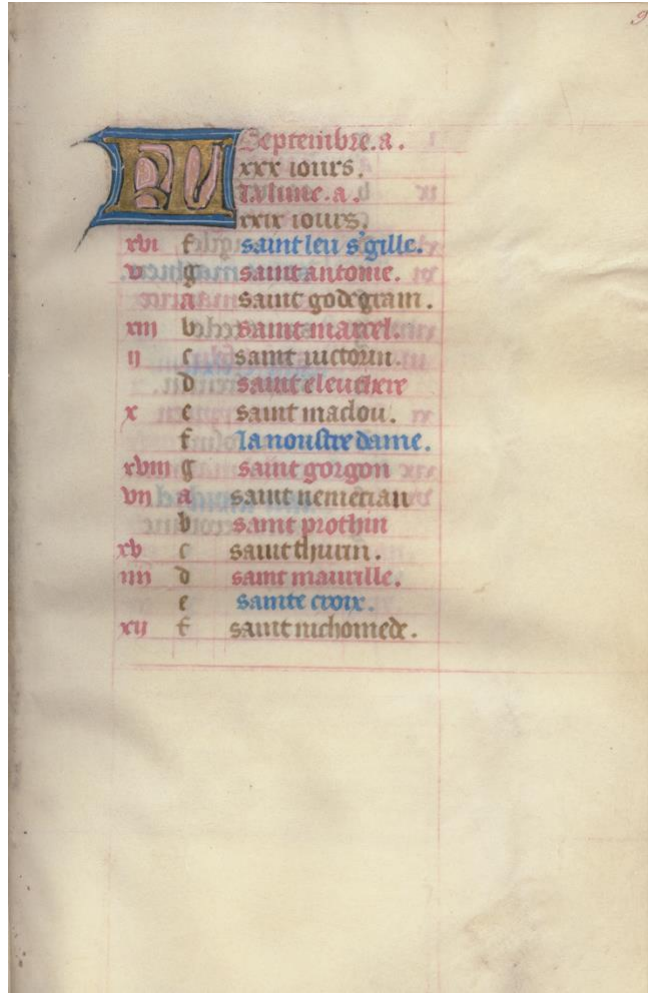 9
KL Septembre.a.
xxx iours.
La lune.a.
xxix iours.
xvi f saint leu s'gille.
v g saint antonie.
a saint godegram.
xiii b saint marcel.
ii c saint uictorin.
d saint eleuthere
x e saint maclou.
f la noustre dame.
xviii g saint gorgon
vii a saint nemecian
b saint prothin
xv c saint thurin.
iiii d saint maurille.
e sainte croix.
xii f saint nichomede.